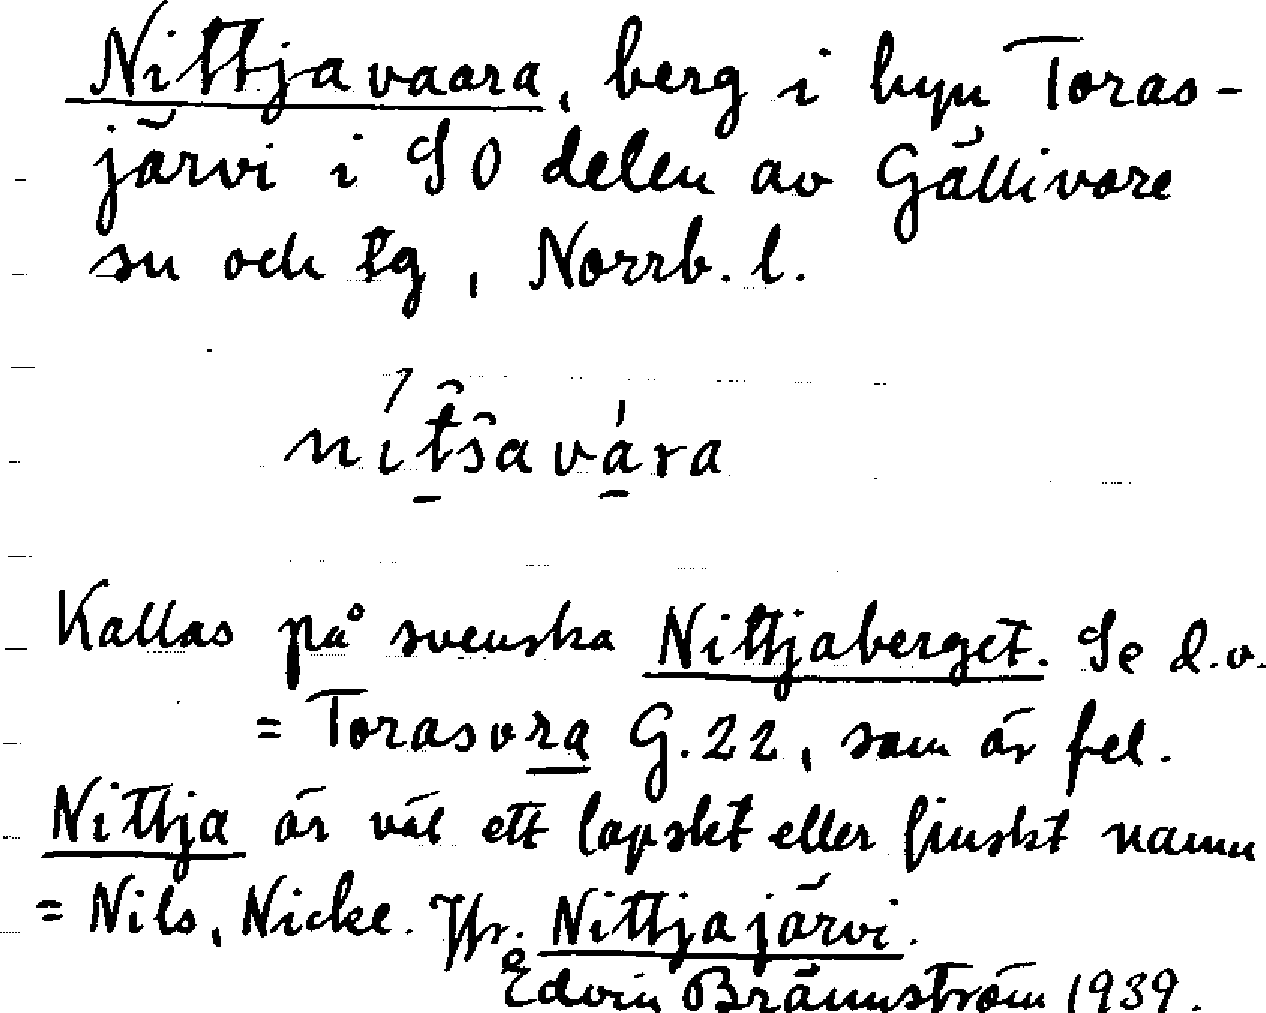 Nittjavaara, berg i byn Toras-
järvi i SO delen av Gällivare
sn och tg, Norrb. l.
nít̂ŝavára
Kallas på svenska Nittjaberget. Se d.o.
= Torasvra G.22, som är fel.
Nittja är väl ett lapskt eller finskt namn
= Nils, Nicke. Jfr. Nittjajärvi.
Edvin Brännström 1939.